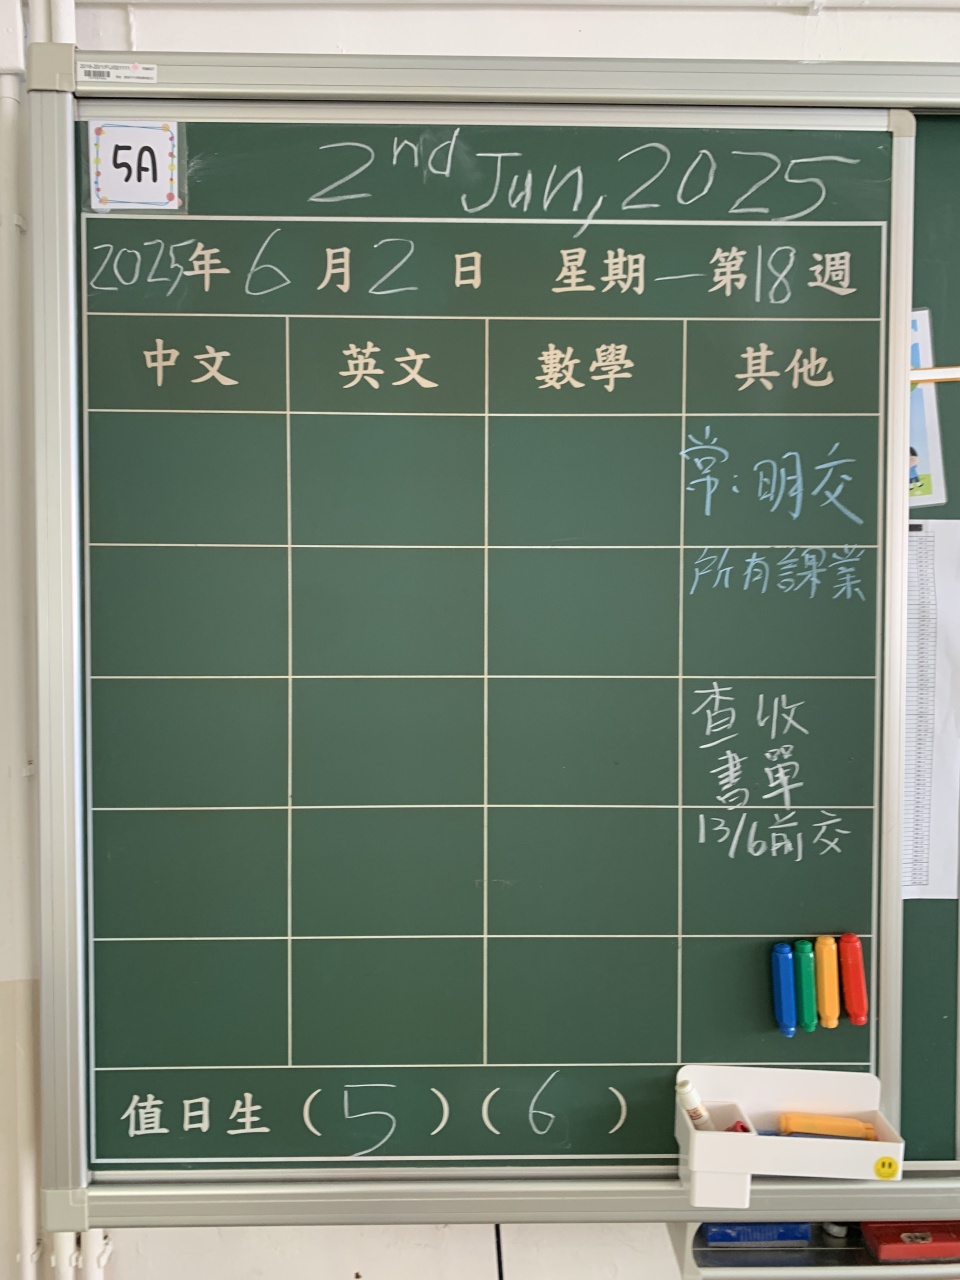 5A
2nd Jun, 2025
2025年6月2日 星期一第18週
中文 英文 數學 其他
常:明交
所有課業
查收
書單
13/6前交
值日生(5)(6)